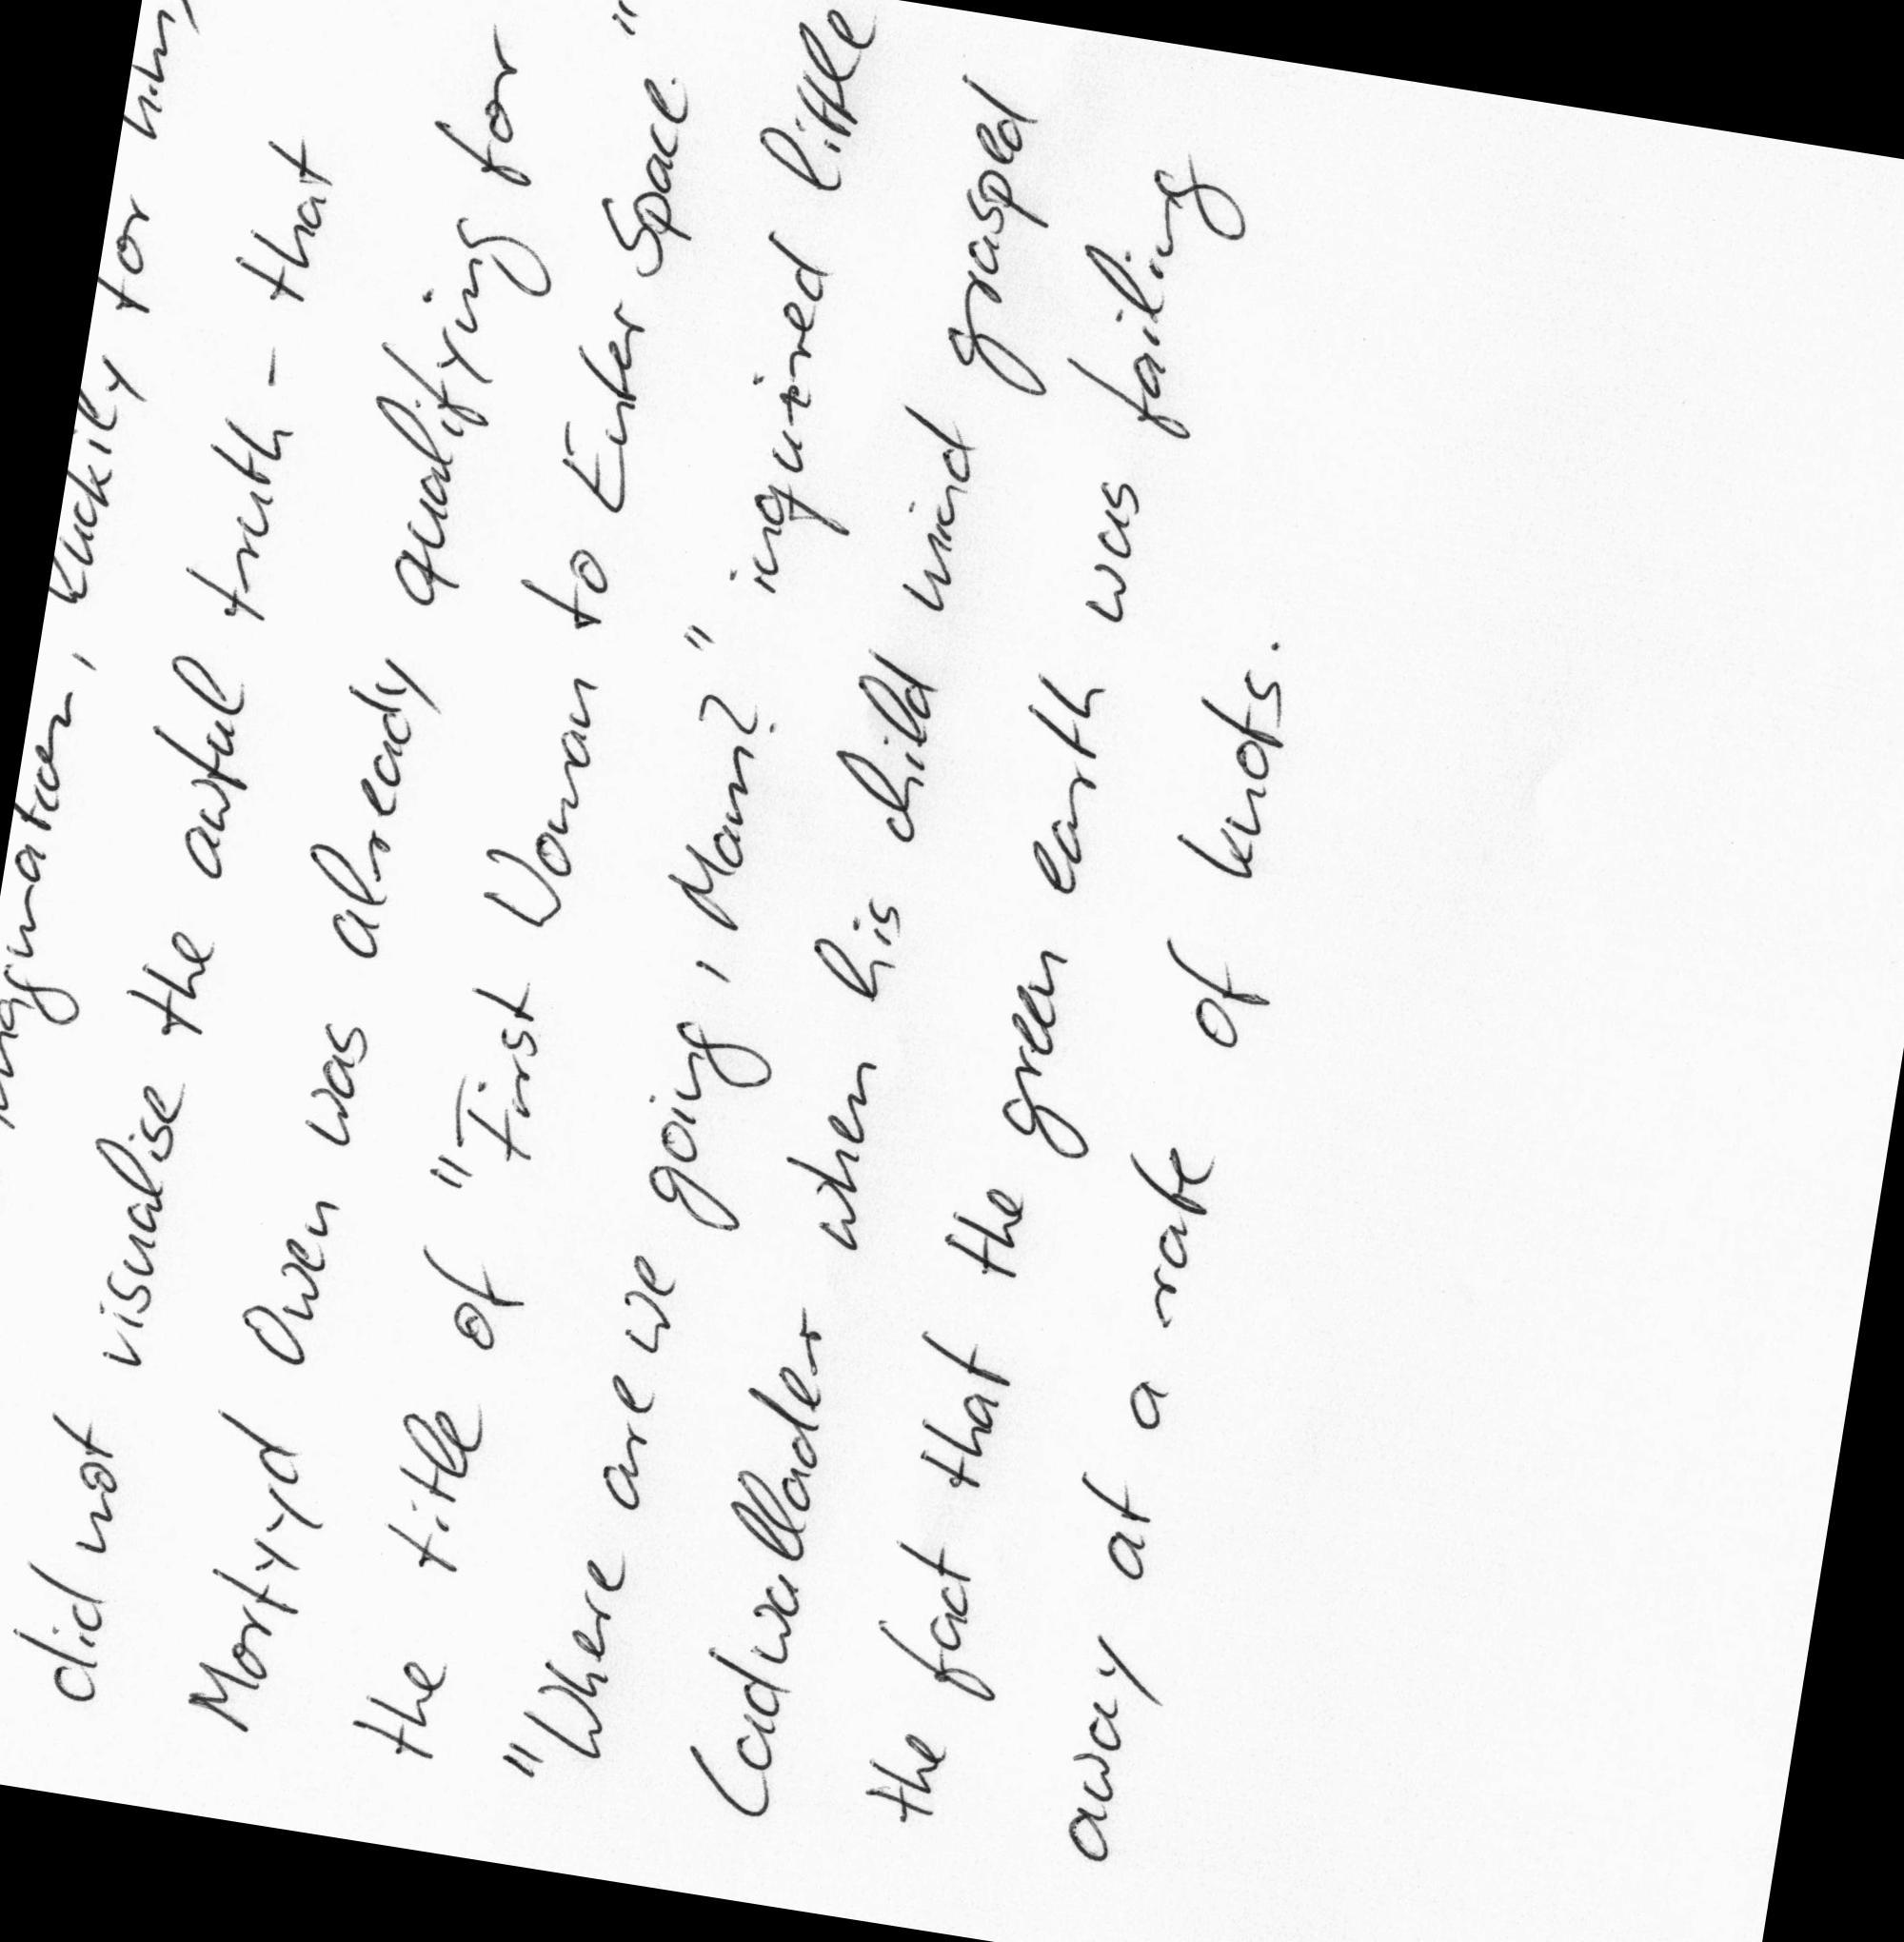 imagination, luckily for him,
did not visualise the awful truth - that
Mortyd Owen was already qualifying for
the title of "First Woman to Enter Space."
"Where are we going, Mam?" inquired little
Cadwallader when his child mind grasped
the fact that the green earth was failing
away at a rate of knots.